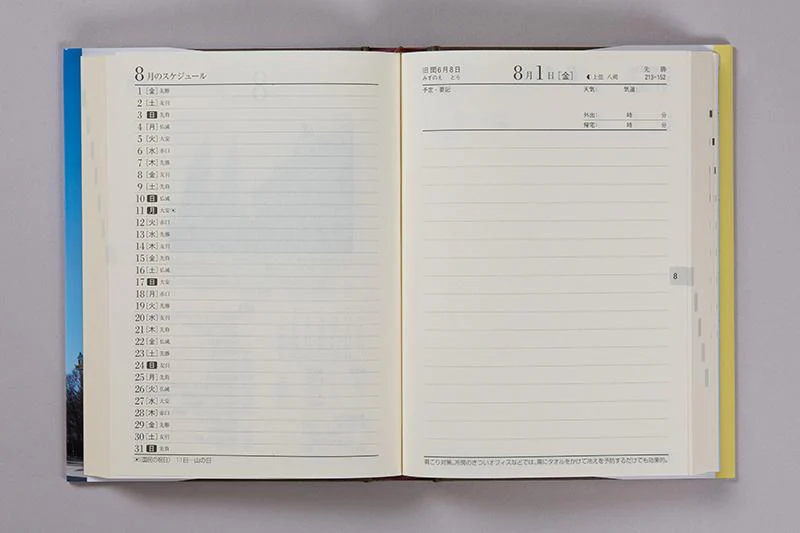 8月のスケジュール
1[金]先勝
2[土]友引
3[日]先負
4[月]仏滅
5[火]大安
6[水]赤口
7[木]先勝
8[金]友引
9[土]先負
10[日]仏滅
11[月]大安(*)
12[火]赤口
13[水]先勝
14[木]友引
15[金]先負
16[土]仏滅
17[日]大安
18[月]赤口
19[火]先勝
20[水]友引
21[木]先負
22[金]仏滅
23[土]先勝
24[日]友引
25[月]先負
26[火]仏滅
27[水]大安
28[木]赤口
29[金]先勝
30[土]友引
31[日]先負
*(国民の祝日) 11日―山の日
旧閏6月8日 8月1日[金] 先 勝
みずのえ とら ◐上弦 八朔 213-152
予定・要記 天気: 気温:
外出: 時 分
帰宅: 時 分
8
肩こり対策。冷房のきついオフィスなどでは、肩にタオルをかけて冷えを予防するだけでも効果的。